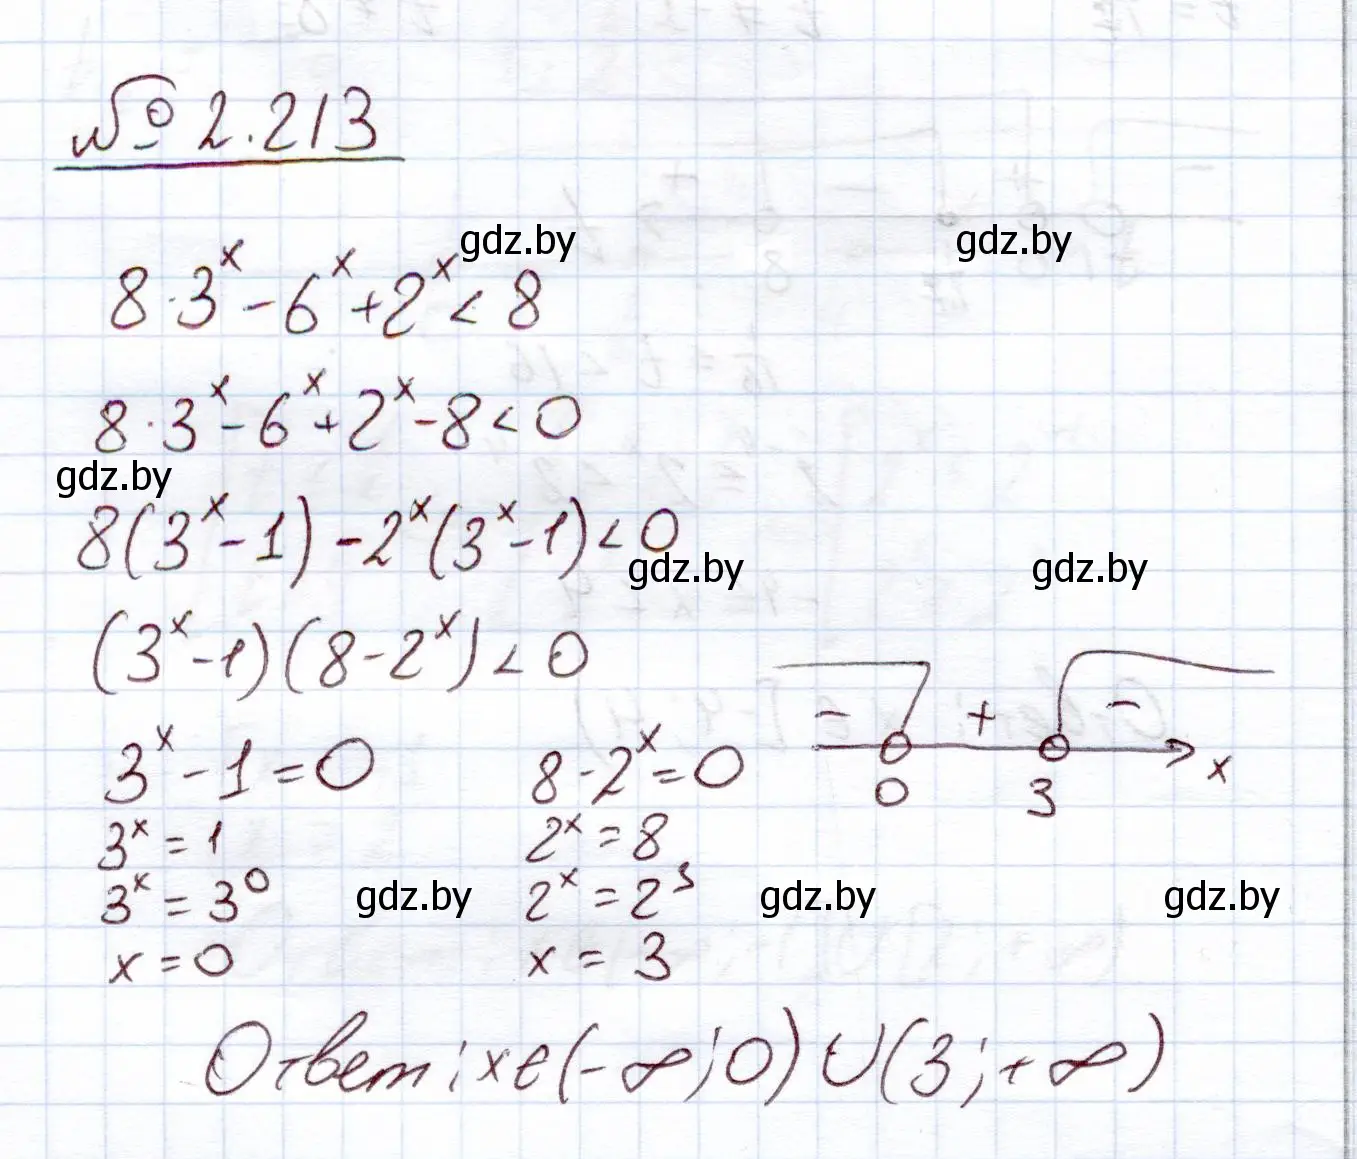 № 2.213
8·3^x - 6^x + 2^x < 8
gdz.by gdz.by
8·3^x - 6^x + 2^x - 8 < 0
gdz.by
8(3^x - 1) - 2^x(3^x - 1) < 0
gdz.by gdz.by
(3^x - 1)(8 - 2^x) < 0
- + -
0 3 x
3^x - 1 = 0 8 - 2^x = 0
3^x = 1 2^x = 8
3^x = 3^0 2^x = 2^3
gdz.by gdz.by gdz.by
x = 0 x = 3
Ответ: x∈(-∞;0)∪(3;+∞)